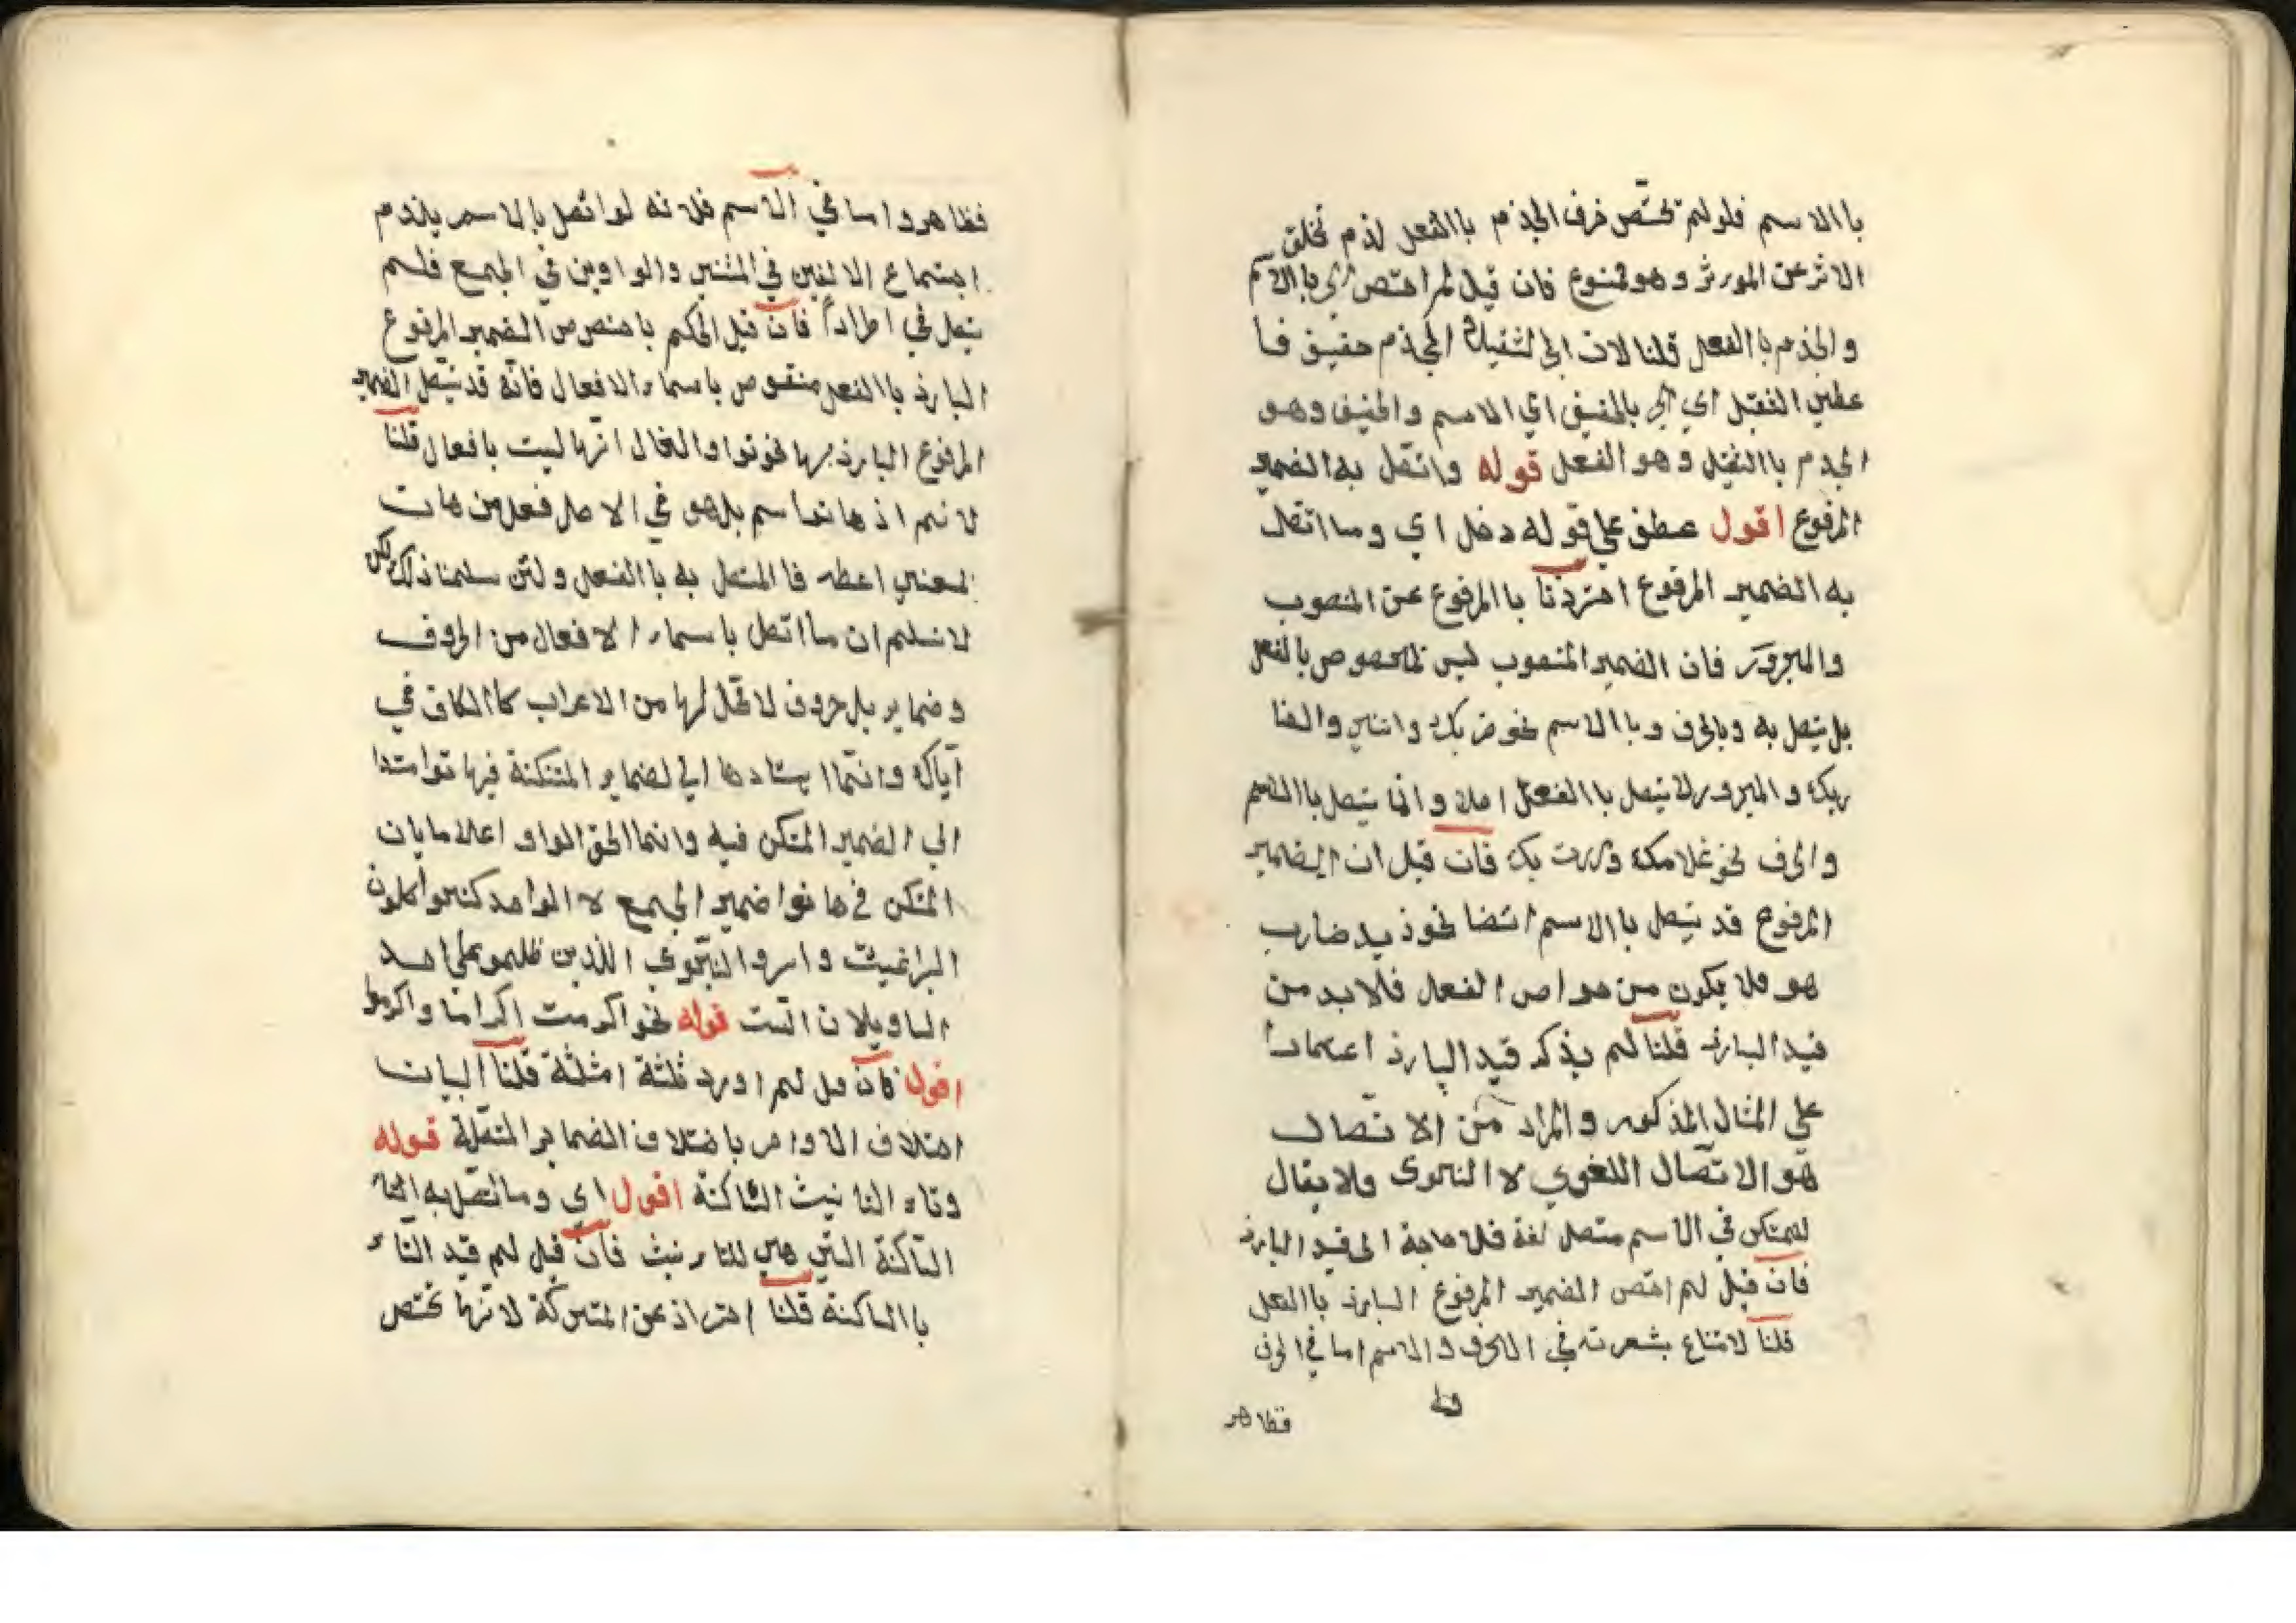 باالاسم فلولم تختص حرف الجذم باالفعل لذم تخلق
الاثر عن المورثر وهو ممنوع فان قيل لم اختص الجر باالاسم
والجذم باالفعل قلنا لان الجر ثقيل الجذم خفيف فا
عطي الثقيل اي الجر بالخفيف اي الاسم والخفيف وهو
الجذم باالثقيل وهو الفعل قوله واتصل به الضمير
المرفوع اقول عطف علي قوله دخل اي وما اتصل
به الضمير المرفوع احترذنا باالمرفوع عن المنصوب
والمجرور فان الضمير المنصوب ليس لمخصوص بالفعل
بل يتصل به وبالحرف وباالاسم نحو ضربك وانني والضا
ربك والمجرور لا يتصل باالفعل اصلا وانما يتصل باالاسم
والحرف نحو غلامك ومررت بك فان قيل ان الضمير
المرفوع قد يتصل باالاسم ايضا نحو ذيد ضارب
هو فلا يكون من خواص الفعل فلا بد من
قيد البارذ قلنا لم يذكر قيد البارذ اعتمادا
علي المثال المذكور والمراد من الاتصال
هو الاتصال اللغوي لا النحوي ولا يقال
للمتكن في الاسم متصل لغة فلا حاجة الى قيد البارذ
فان قيل لم اختص الضمير المرفوع البارذ باالفعل
قلنا لامتناع بشعرته في الحرف والاسم اما في الحرف
فظاهر
فظاهر واما في الاسم فلانه لو اتصل بالاسم يلذم
اجتماع الالفين في المثني والواوين في الجمع فلم
يتصل في اطرادا فان قيل الحكم باختصاص الضمير المرفوع
البارذ باالفعل منقوص باسماء الافعال فانه قد يتصل الضمير
المرفوع البارذ بها نحو توا والفال انها ليست بافعال قلنا
لا نسلم اذ هاتوا اسم بل هو في الاصل فعل من هات
لمعني اعطه فا المتصل به باالفعل ولئن سلمنا ذلك لكن
لا نسلم ان ما اتصل باسماء الافعال من الحروف
وضماير بل حروف لا محل لها من الاعراب كاالكاف في
اياك وانما اسنادها الي لضماير المتكنة فيها توا متدا
الي الضمير المتكن فيه وانما الحق الواو اعلاما بان
المتكن في هاتوا ضمير الجمع لا الواحد كنحو اكلون
البراغيث واسروا النجوي الذين ظلموا علي احد
التاويلان الست قوله نحو اكرمت اكراما واكرموا
اقول فان قيل لم اورد ثلثة امثلة قلنا لبيان
اختلاف الاواخر باختلاف الضماير المتصلة قوله
وتاء التانيث الساكنة اقول اي وما اتصل به التاء
الساكنة التي هي للتاءنيث فان قيل لم قيد التاء
باالساكنة قلنا احتراذ عن المتحركة لانها تختص